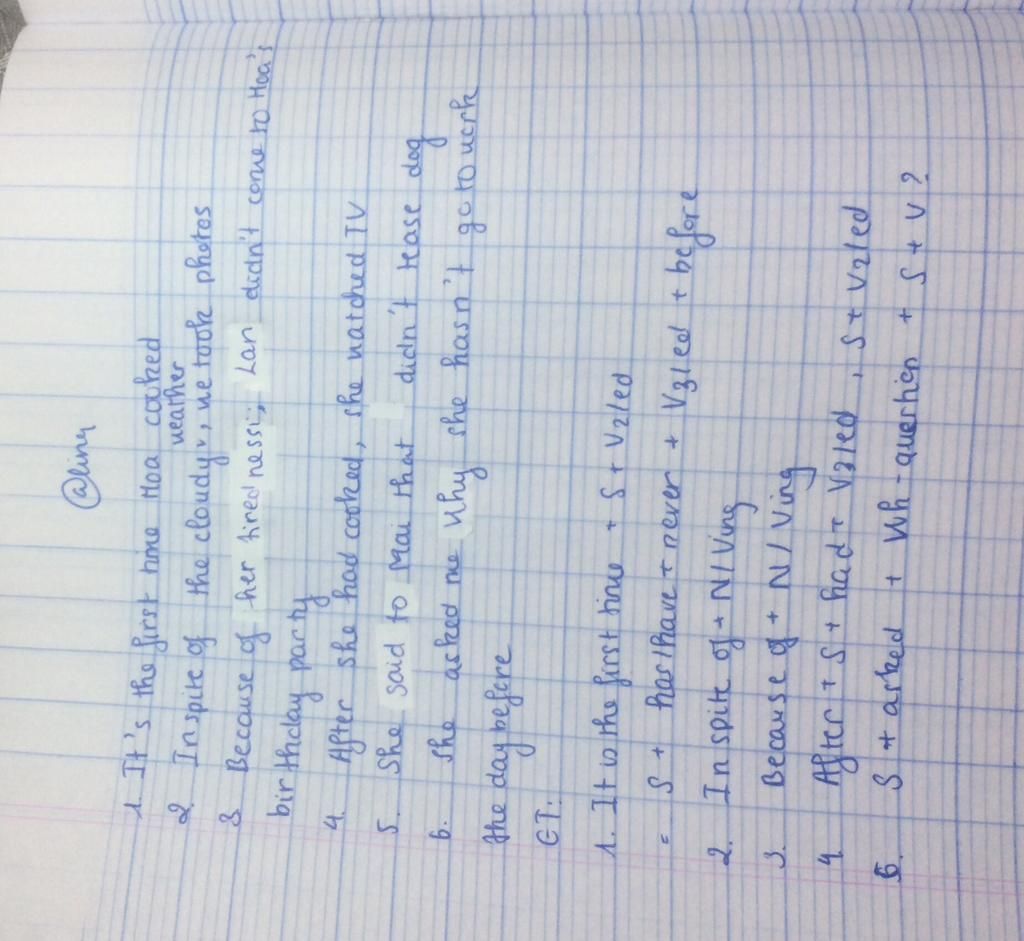 @liny
1. It's the first time Hoa cooked
weather
2. In spite of the cloudy v, we took photos
3 Because of her tiredness;, Lan didn't come to Hoa's
birthday party
4. After she had cooked, she watched TV
5. She said to Mai that didn't tease dog
6. She asked me Why she hasn't go to work
the day before
CT:
1. It is the first time + S + V2/ed
= S + has/have + never + V3/ed + before
2. In spite of + N/Ving
3. Because of + N/Ving
4 After + S + had + V3/ed, S + V2/ed
6. S + asked + Wh-question + S + V?